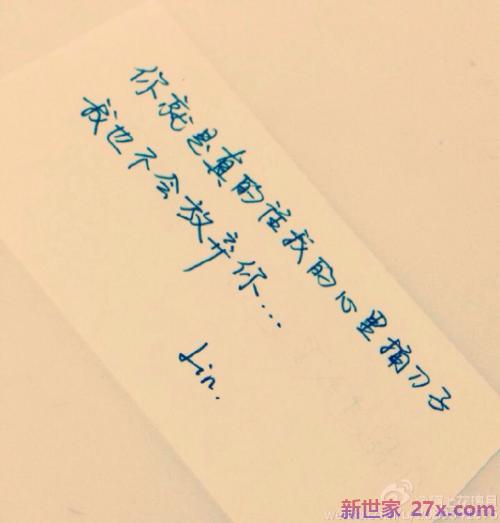 你就是真的往我的心里捅刀子
我也不会放弃你...
Lin.
新世家 27x.com